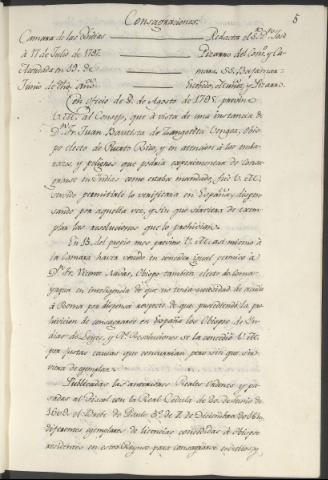 5
Consagraciones.
Camara de las Indias
à 17 de Julio de 1781.
Acordada en 19. de
Junio de dho. año
Redacta el Sr. Dn. José
Pizarro del Conso. y Ca-
mara. SS. Bustamante
Huerta, Nuñez, y Pizarro.
Con oficio de 8. de Agosto de 1795 previno
V.M. al Consejo, que à vista de una instancia de
Dn. Fr. Juan Bautista de Zengotita Vengoa, Obis-
po electo de Puerto Rico, y en atencion à los emba-
razos, y peligros que podria experimentar de consa-
grarse en Indias como estaba mandado, fue V.M.
servido permitirle lo verificara en España, dispen-
sando por aquella vez, y sin que sirviera de exem-
plar las resoluciones que lo prohivian.
En 13. del propio mes previno V.M. asi mismo à
la Camara havia venido en conceder igual permiso à
Dn. Fr. Vicente Navas, Obispo tambien electo de Coma-
yagua en inteligencia de que no tenia necesidad de acudir
à Roma por dispensa respecto de que, procediendo la pro-
hivicion de consagrarse en España los Obispos de In-
dias de Leyes, y Rs. Resoluciones se la concedia V.M.
por justas causas que concurrian, pero sin que sir-
viera de exemplar.
Publicadas las anteriores Reales Ordenes y pa-
sadas al Fiscal con la Real Cedula de 20. de Junio de
diferentes exemplares de licencias concedidas à Obispos
residentes en estos Reynos para consagrarse en ellos, y